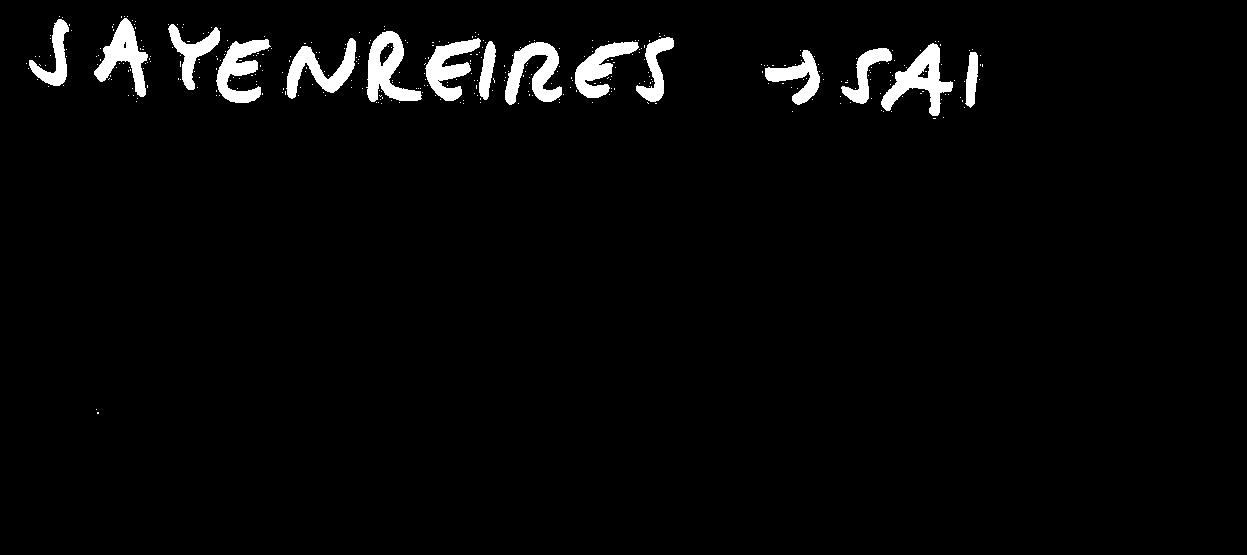 SAYENREIRES → SAI